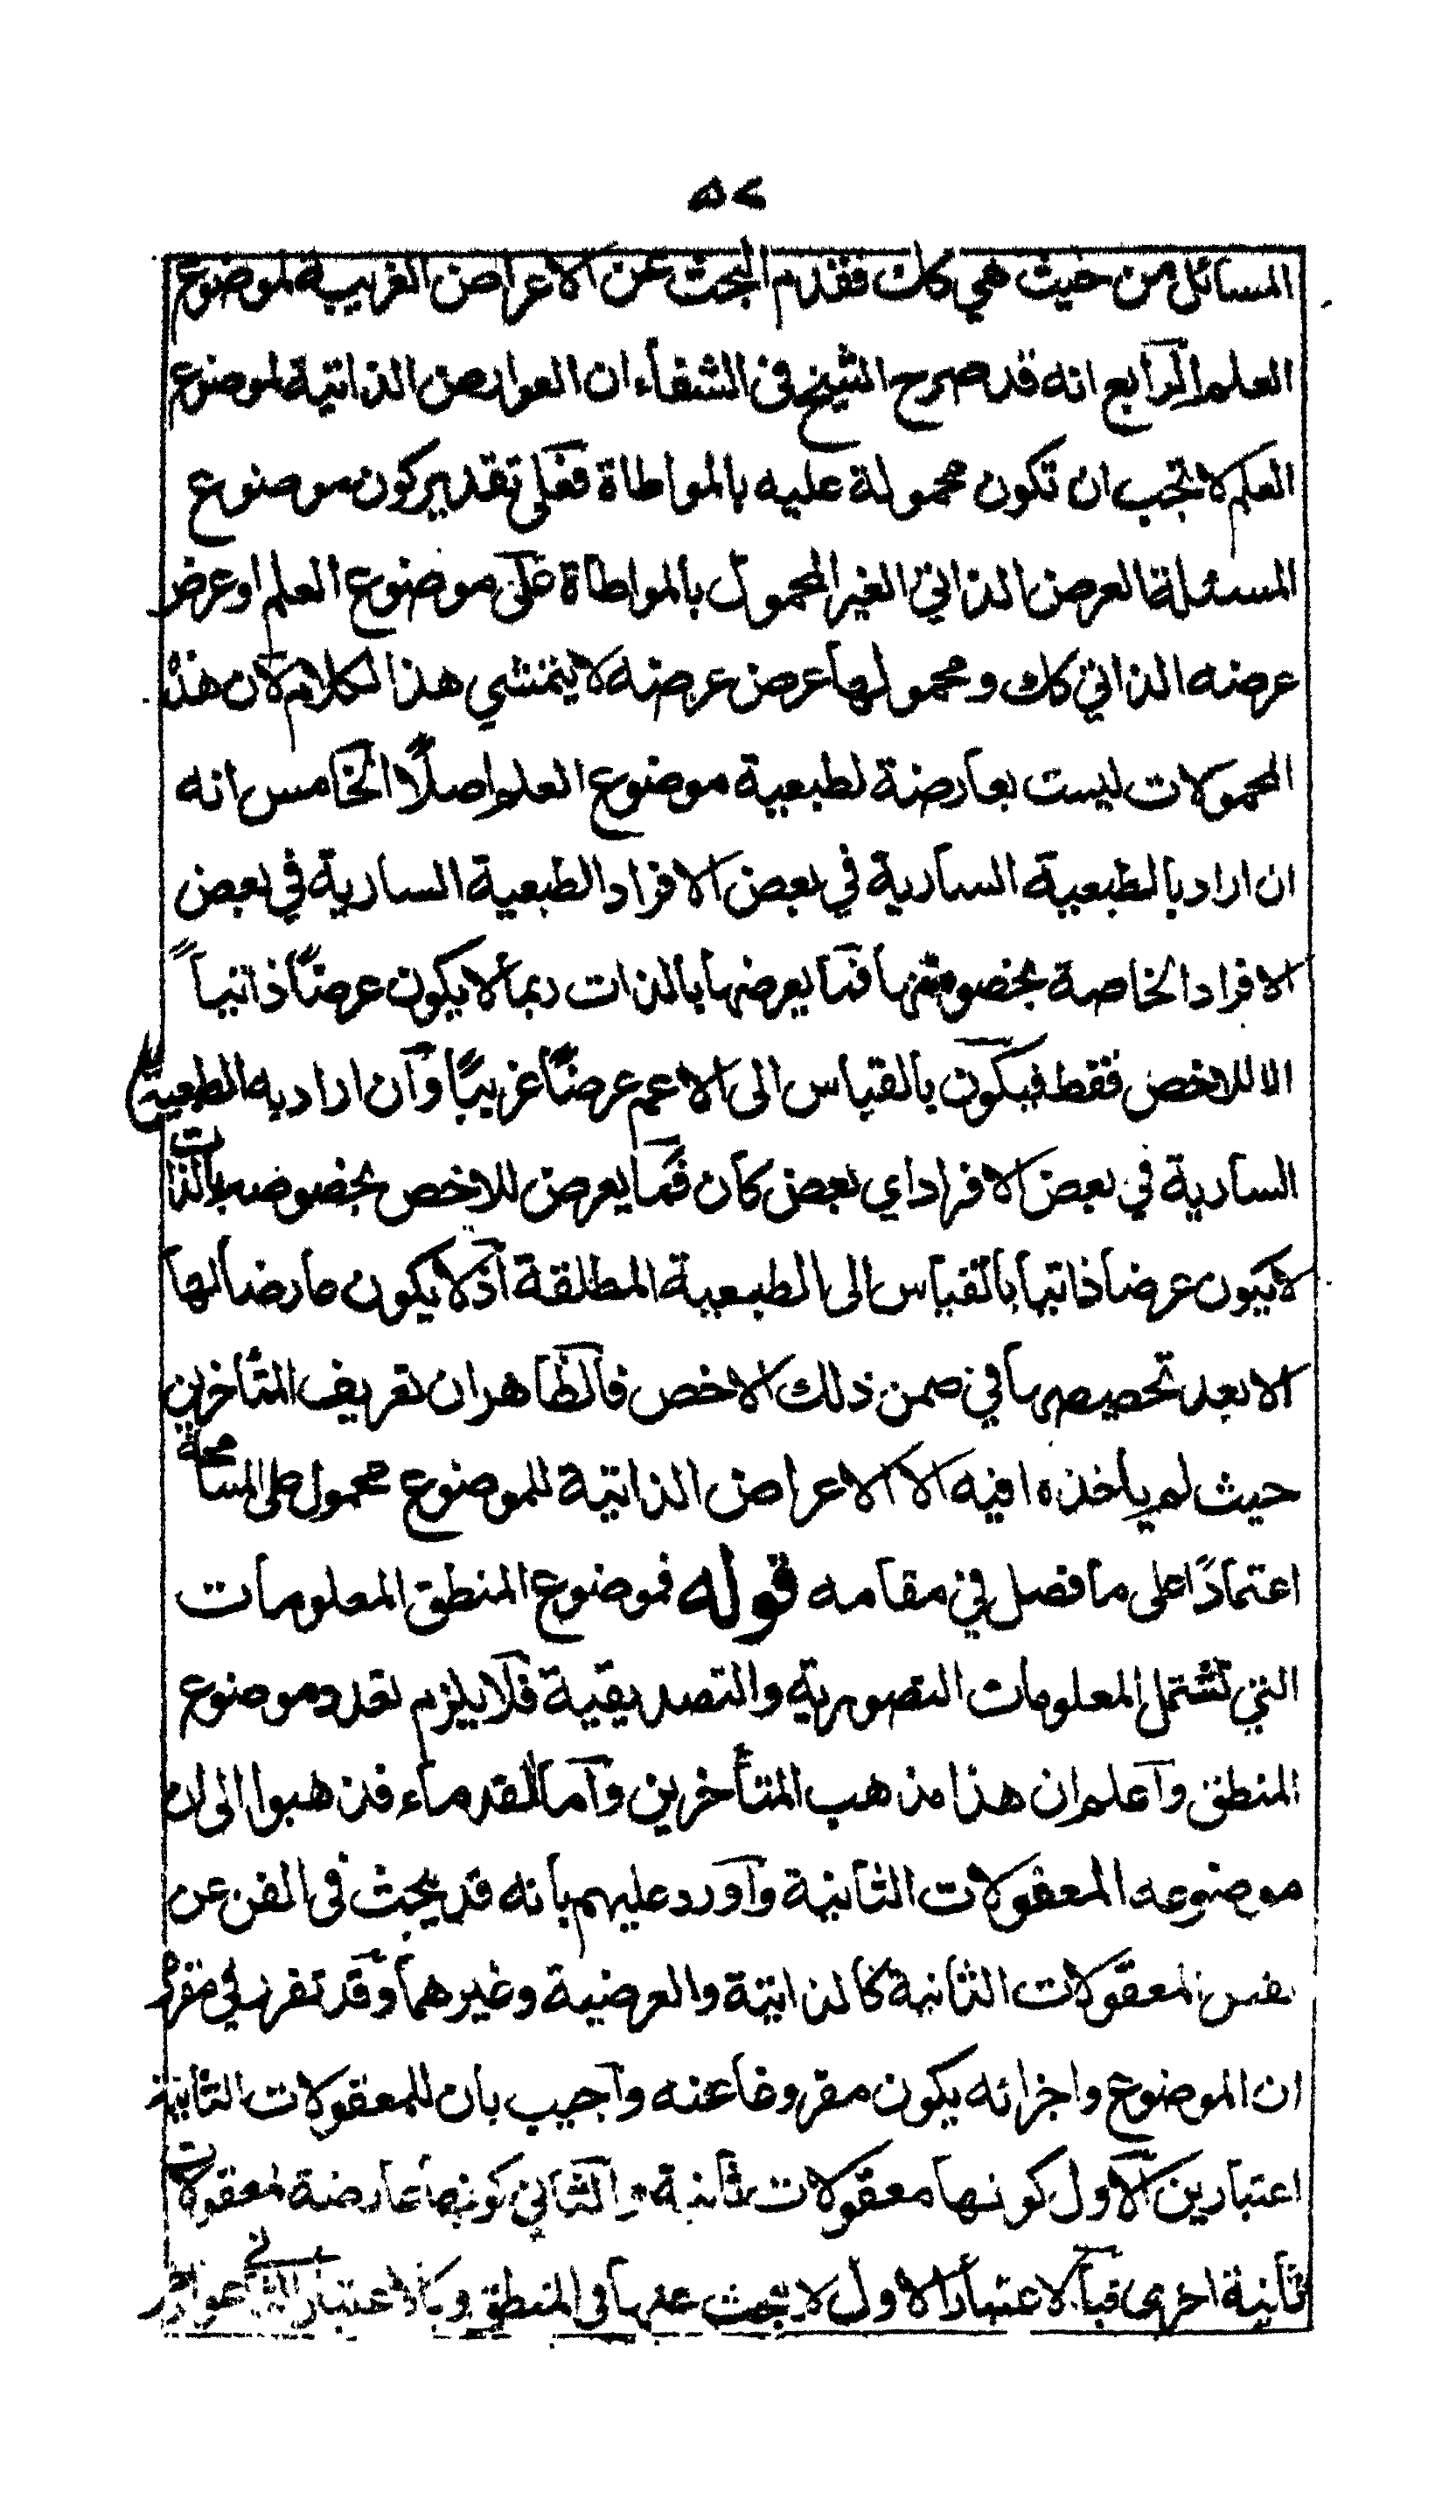 ٥٧
المسائل من حيث هي كك فقدم البحث عن الاعراض الغريبة لموضوع
العلم الرابع انه قد صرح الشيخ في الشفاء ان العوارض الذاتية لموضوع
العلم لا تجب ان تكون محمولة عليه بالمواطاة فعلى تقدير كون موضوع
المسئلة العرض الذاتي الغير المحمول بالمواطاة على موضوع العلم او عرض
عرضه الذاتي كك ومحمولها عرض عرضه لا يتمشي هذا الكلام لان هذه
المحمولات ليست بعارضة لطبعية موضوع العلم اصلًا الخامس انه
ان اراد بالطبعية السارية في بعض الافراد الطبعية السارية في بعض
الافراد الخاصة بخصوصها فما يعرضها بالذات ربما لا يكون عرضًا ذاتياً
الا للاخص فقط فيكون بالقياس الى الاعم عرضًا غريبًا وان اراد به الطبعية
السارية في بعض الافراد اي بعض كان فما يعرض للاخص بخصوصه بالذات
لا يكون عرضا ذاتيا بالقياس الى الطبعية المطلقة اذ لا يكون عارضا لها
الا بعد تخصيصها في ضمن ذلك الاخص فالظاهر ان تعريف المتأخرين
حيث لم ياخذوا فيه الا الاعراض الذاتية للموضوع محمول على المسامحة
اعتمادًا على ما فصل في مقامه قوله فموضوع المنطق المعلومات
التي تشتمل المعلومات التصورية والتصديقية فلا يلزم تعدد موضوع
المنطق واعلم ان هذا مذهب المتأخرين واما القدماء فذهبوا الى ان
موضوعه المعقولات الثانية واورد عليهم بانه قد يبحث في الفن عن
نفس المعقولات الثانية كالذاتية والعرضية وغيرهما وقد تقرر في مقره
ان الموضوع واجزائه يكون مفروغا عنه واجيب بان للمعقولات الثانية
اعتبارين الاول كونها معقولات ثانية والثاني كونها عارضة لمعقولات
ثانية اخرى فبالاعتبار الاول لا يبحث عنها في المنطق وبالاعتبار الثاني عوارض